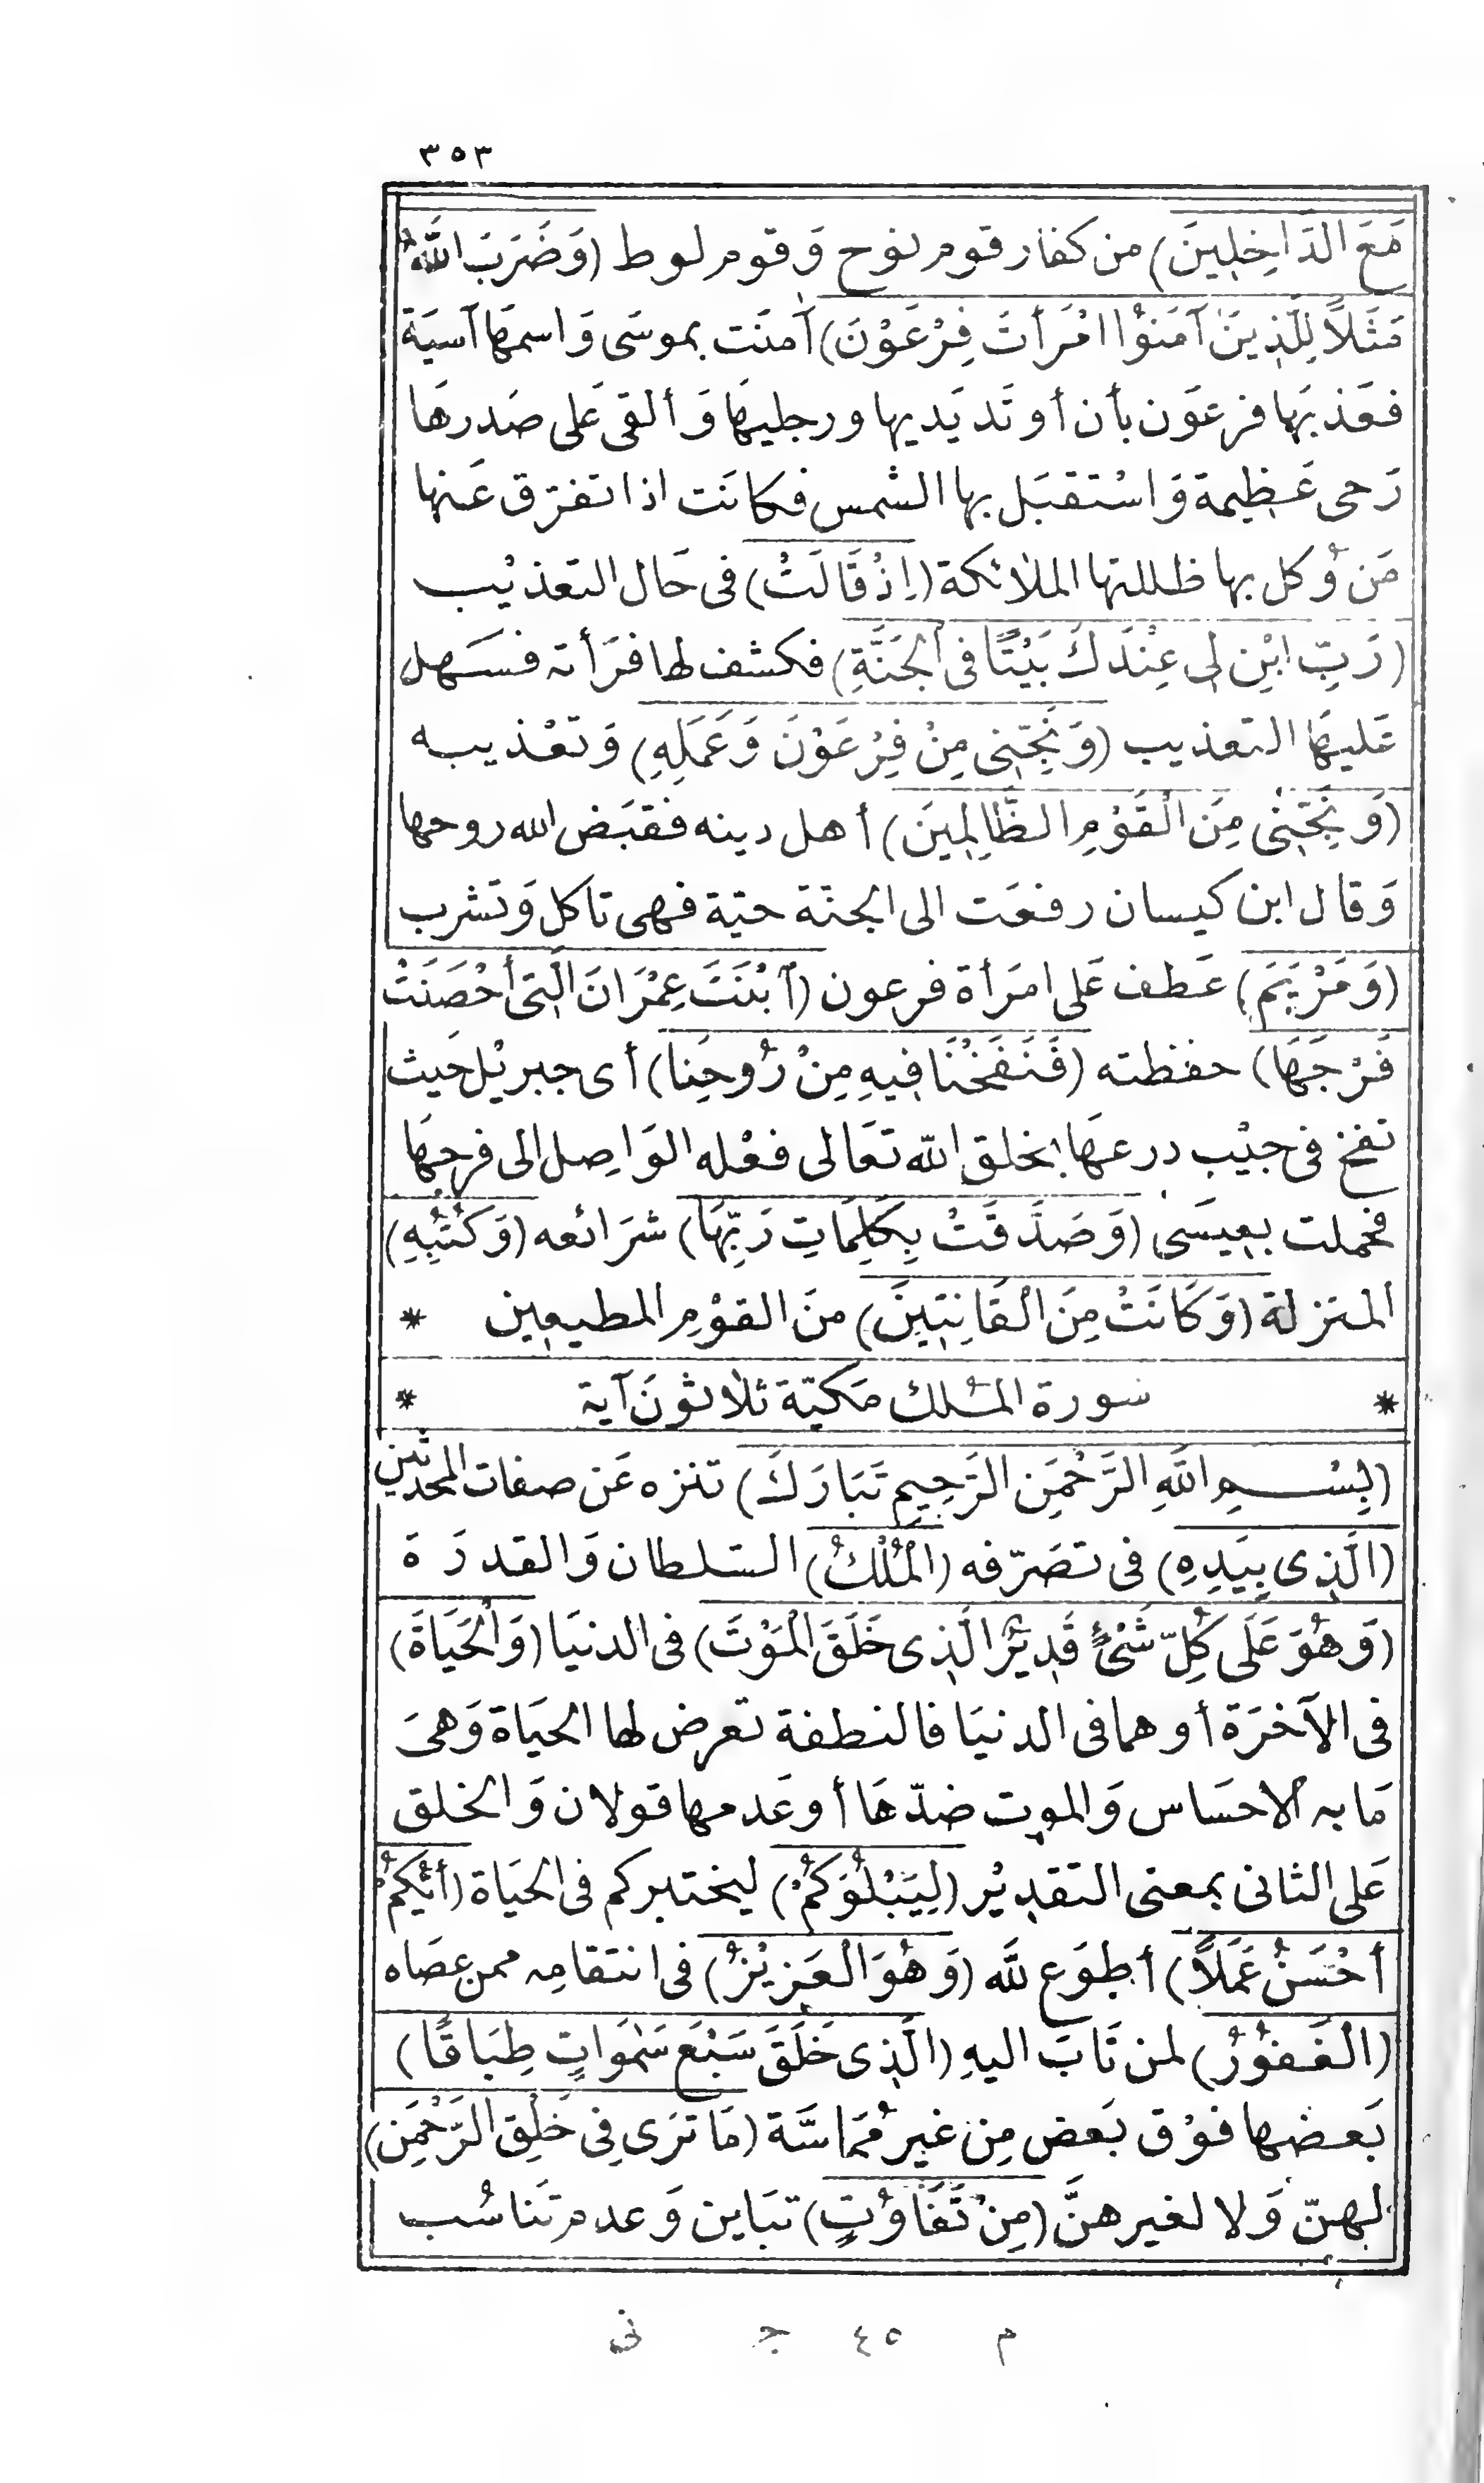 ٣٥٣
مَعَ الدَّاخِلِينَ) من كفار قوم نوح وَقوم لوط (وَضَرَبَ اللَّهُ
مَثَلًا لِلَّذِينَ آمَنُوْا امْرَأَتَ فِرْعَوْنَ) آمنَت بموسَى وَاسمهَا آسيَة
فعَذبَها فرعَون بأن أوتَد يَديها ورجليهَا وَألقى عَلى صَدرهَا
رَحى عَظيمة وَاسْتقبَل بها الشمس فكانَت اذا تفرّق عَنها
مَن وُكل بها ظللتها الملائكة (اِذْ قَالَتْ) فى حَال التعذيْب
(رَبِّ ابْنِ لِى عِنْدَكَ بَيْتًا فى الْجَنَّةِ) فكشف لها فرَأته فسَهل
عَليهَا التعذيب (وَنَجِّنِى مِنْ فِرْعَوْنَ وَعَمَلِهِ) وَتعْذيبه
(وَنَجِّنِى مِنَ الْقَوْمِ الظَّالِمِينَ) أهل دينه فقبَض الله روحها
وَقال ابن كيسان رفعَت الى الجنّة حيّة فهى تاكل وَتشرب
(وَمَرْيَمَ) عَطف عَلى امرَأة فرعون (ابْنَتَ عِمْرَانَ الَّتِى أَحْصَنَتْ
فَرْجَهَا) حفظته (فَنَفَخْنَا فِيهِ مِنْ رُوحِنَا) أى جبريْل حَيث
نفخ فى جيْب درعهَا بخلق الله تعَالى فعْله الوَاصِل الى فرجهَا
فحملت بعيسَى (وَصَدَّقَتْ بِكَلِمَاتِ رَبِّهَا) شرَائعه (وَكُتُبِهِ)
المنزلة (وَكَانَتْ مِنَ الْقَانِتِينَ) منَ القوْمِ المطيعين *
* سورة المُلك مَكيّة ثلاثونَ آية *
(بِسْمِ اللَّهِ الرَّحْمَنِ الرَّحِيمِ تَبَارَكَ) تنزه عَن صفات المحدثين
(الَّذِى بِيَدِهِ) فى تصَرّفه (الْمُلْكُ) السّلطان وَالقدرَة
(وَهُوَ عَلَى كُلِّ شَىْءٍ قَدِيْرٌ الَّذِى خَلَقَ الْمَوْتَ) فى الدنيَا (وَالْحَيَاةَ)
فى الآخرَة أوهما فى الدنيَا فالنطفة تعرض لها الحيَاة وَهىَ
مَا به الاحسَاس وَالموت ضدّهَا أوعَدمها قولان وَالخلق
عَلى الثانى بمعنى التقديْر (لِيَبْلُوَكُمْ) ليختبركم فى الحيَاة (أَيُّكُمْ
أَحْسَنُ عَمَلًا) أطوَع لله (وَهُوَ الْعَزِيْزُ) فى انتقامِه ممن عصَاه
(الْغَفُوْرُ) لمن تَابَ اليهِ (الَّذِى خَلَقَ سَبْعَ سَمٰوَاتٍ طِبَاقًا)
بَعضها فوْق بَعض مِن غير مُمَاسَّة (مَا تَرَى فِى خَلْقِ الرَّحْمَنِ)
لهنّ وَلا لغيرهنَّ (مِنْ تَفَاوُتٍ) تبَاين وَعدم تَناسُب
م ٤٥ ج نى